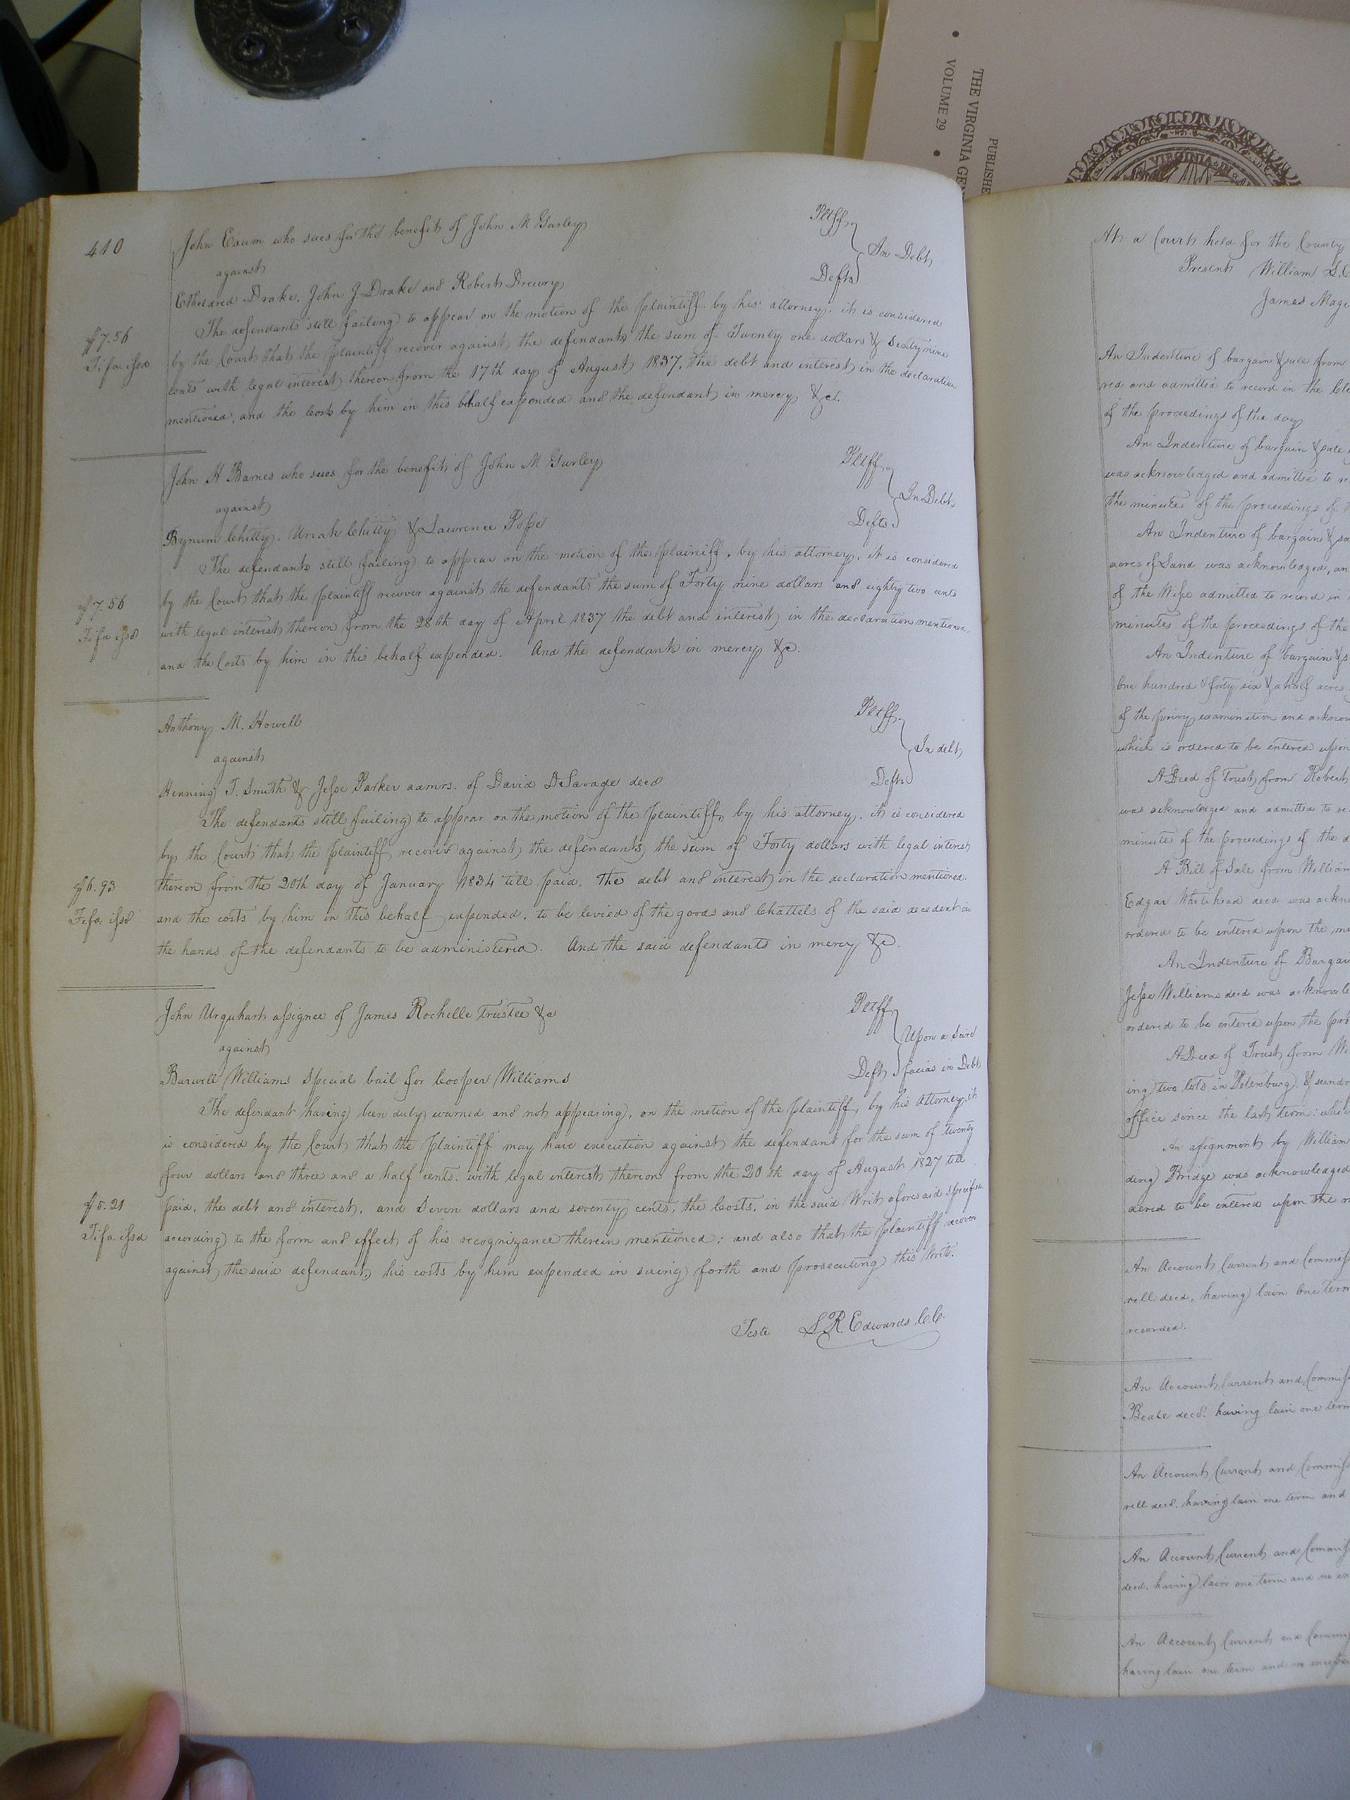 THE VIRGINIA GE
VOLUME 29
PUBLISHE
VIRGINIA
410
John Exum who sues for the benefit of John M Gurley Pltff
against In Debt
Etheldred Drake, John J Drake and Robert Drewry Defts
The defendants still failing to appear on the motion of the plaintiff by his attorney, it is considered
$7.56
by the Court that the plaintiff recover against the defendants the sum of Twenty one dollars & Sixty nine
Fi fa issd
cents with legal interest thereon from the 17th day of August 1837, the debt and interest in the declaration
mentioned, and the Costs by him in this behalf expended and the defendant in mercy &ct.
John H Barnes who sues for the benefit of John M Gurley Pltff
against In Debt
Bynum Chitty, Uriah Chitty & Lawrence Pope Defts
The defendants still failing to appear on the motion of the plaintiff, by his attorney, it is considered
by the Court that the plaintiff recover against the defendants the sum of Forty nine dollars and eighty two cents
$7.56
with legal interest thereon from the 28th day of April 1837 the debt and interest in the declaration mentioned
Fi fa issd
and the Costs by him in this behalf expended. And the defendants in mercy &c.
Anthony M. Howell Pltff
against In debt
Henning T. Smith & Jesse Parker admrs. of David DeSavage decd Defts
The defendants still failing to appear on the motion of the plaintiff, by his attorney, it is considered
by the Court that the plaintiff recover against the defendants the sum of Forty dollars with legal interest
$6.93
thereon from the 20th day of January 1834 till paid, The debt and interest in the declaration mentioned
Fi fa issd
and the costs by him in this behalf expended, to be levied of the goods and Chattels of the said decedent in
the hands of the defendants to be administered. And the said defendants in mercy &c.
John Urquhart assignee of James Rochelle trustee &c Pltff
against Upon a Scire
Burwell Williams Special bail for Cooper Williams Deft facias in Debt
The defendant having been duly warned and not appearing, on the motion of the plaintiff, by his attorney, it
is considered by the Court that the Plaintiff may have execution against the defendant for the sum of twenty
four dollars and three and a half cents, with legal interest thereon from the 20th day of August 1827 till
$5.21
paid, the debt and interest, and Seven dollars and seventy cents, the Costs, in the said Writ aforesaid specified
Fi fa issd
according to the form and effect of his recognizance therein mentioned; and also that the Plaintiff recover
against the said defendant, his costs by him expended in suing forth and prosecuting this Writ.
Teste S R Edwards C.C.
At a Court held for the County
Present William
James Mag
An Indenture of bargain & sale from
red and admitted to record in the Cle
of the proceedings of the day
An Indenture of bargain & sale
was acknowledged and admitted to re
the minutes of the proceedings of
An Indenture of bargain & sa
acres of Land was acknowledged, an
of the Wife admitted to record in
minutes of the proceedings of the
An Indenture of bargain & s
One hundred & forty six & a half acres
of the privy examination and acknow
which is ordered to be entered upon
A Deed of Trust from Robert
was acknowledged and admitted to re
minutes of the proceedings of the d
A Bill of Sale from William
Edgar Whitehead decd was ackn
ordered to be entered upon the m
An Indenture of Bargai
Jesse Williams decd was acknowle
ordered to be entered upon the pro
A Deed of Trust from W
ing two lots in Petersburg & sundr
office since the last term: whi
An assignment by William
ding Bridge was acknowledged
dered to be entered upon the m
An Account Current and Commiss
rell decd. having lain one term
recorded.
An Account Current and Commiss
Beale decd. having lain one term
An Account Current and Commiss
rell decd. having lain one term and
An Account Current and Commiss
decd. having lain one term and no ex
An Account Current and Commiss
having lain one term and no except